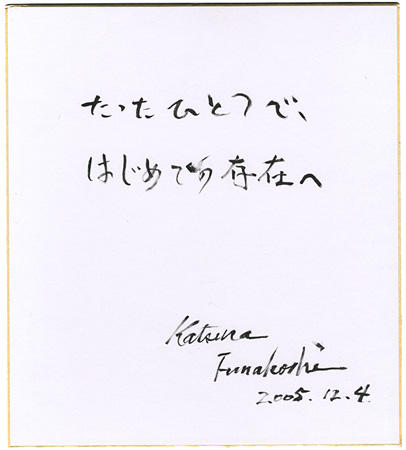 たったひとつで、
はじめての存在へ
Katsura
Funakoshi
2005.12.4.